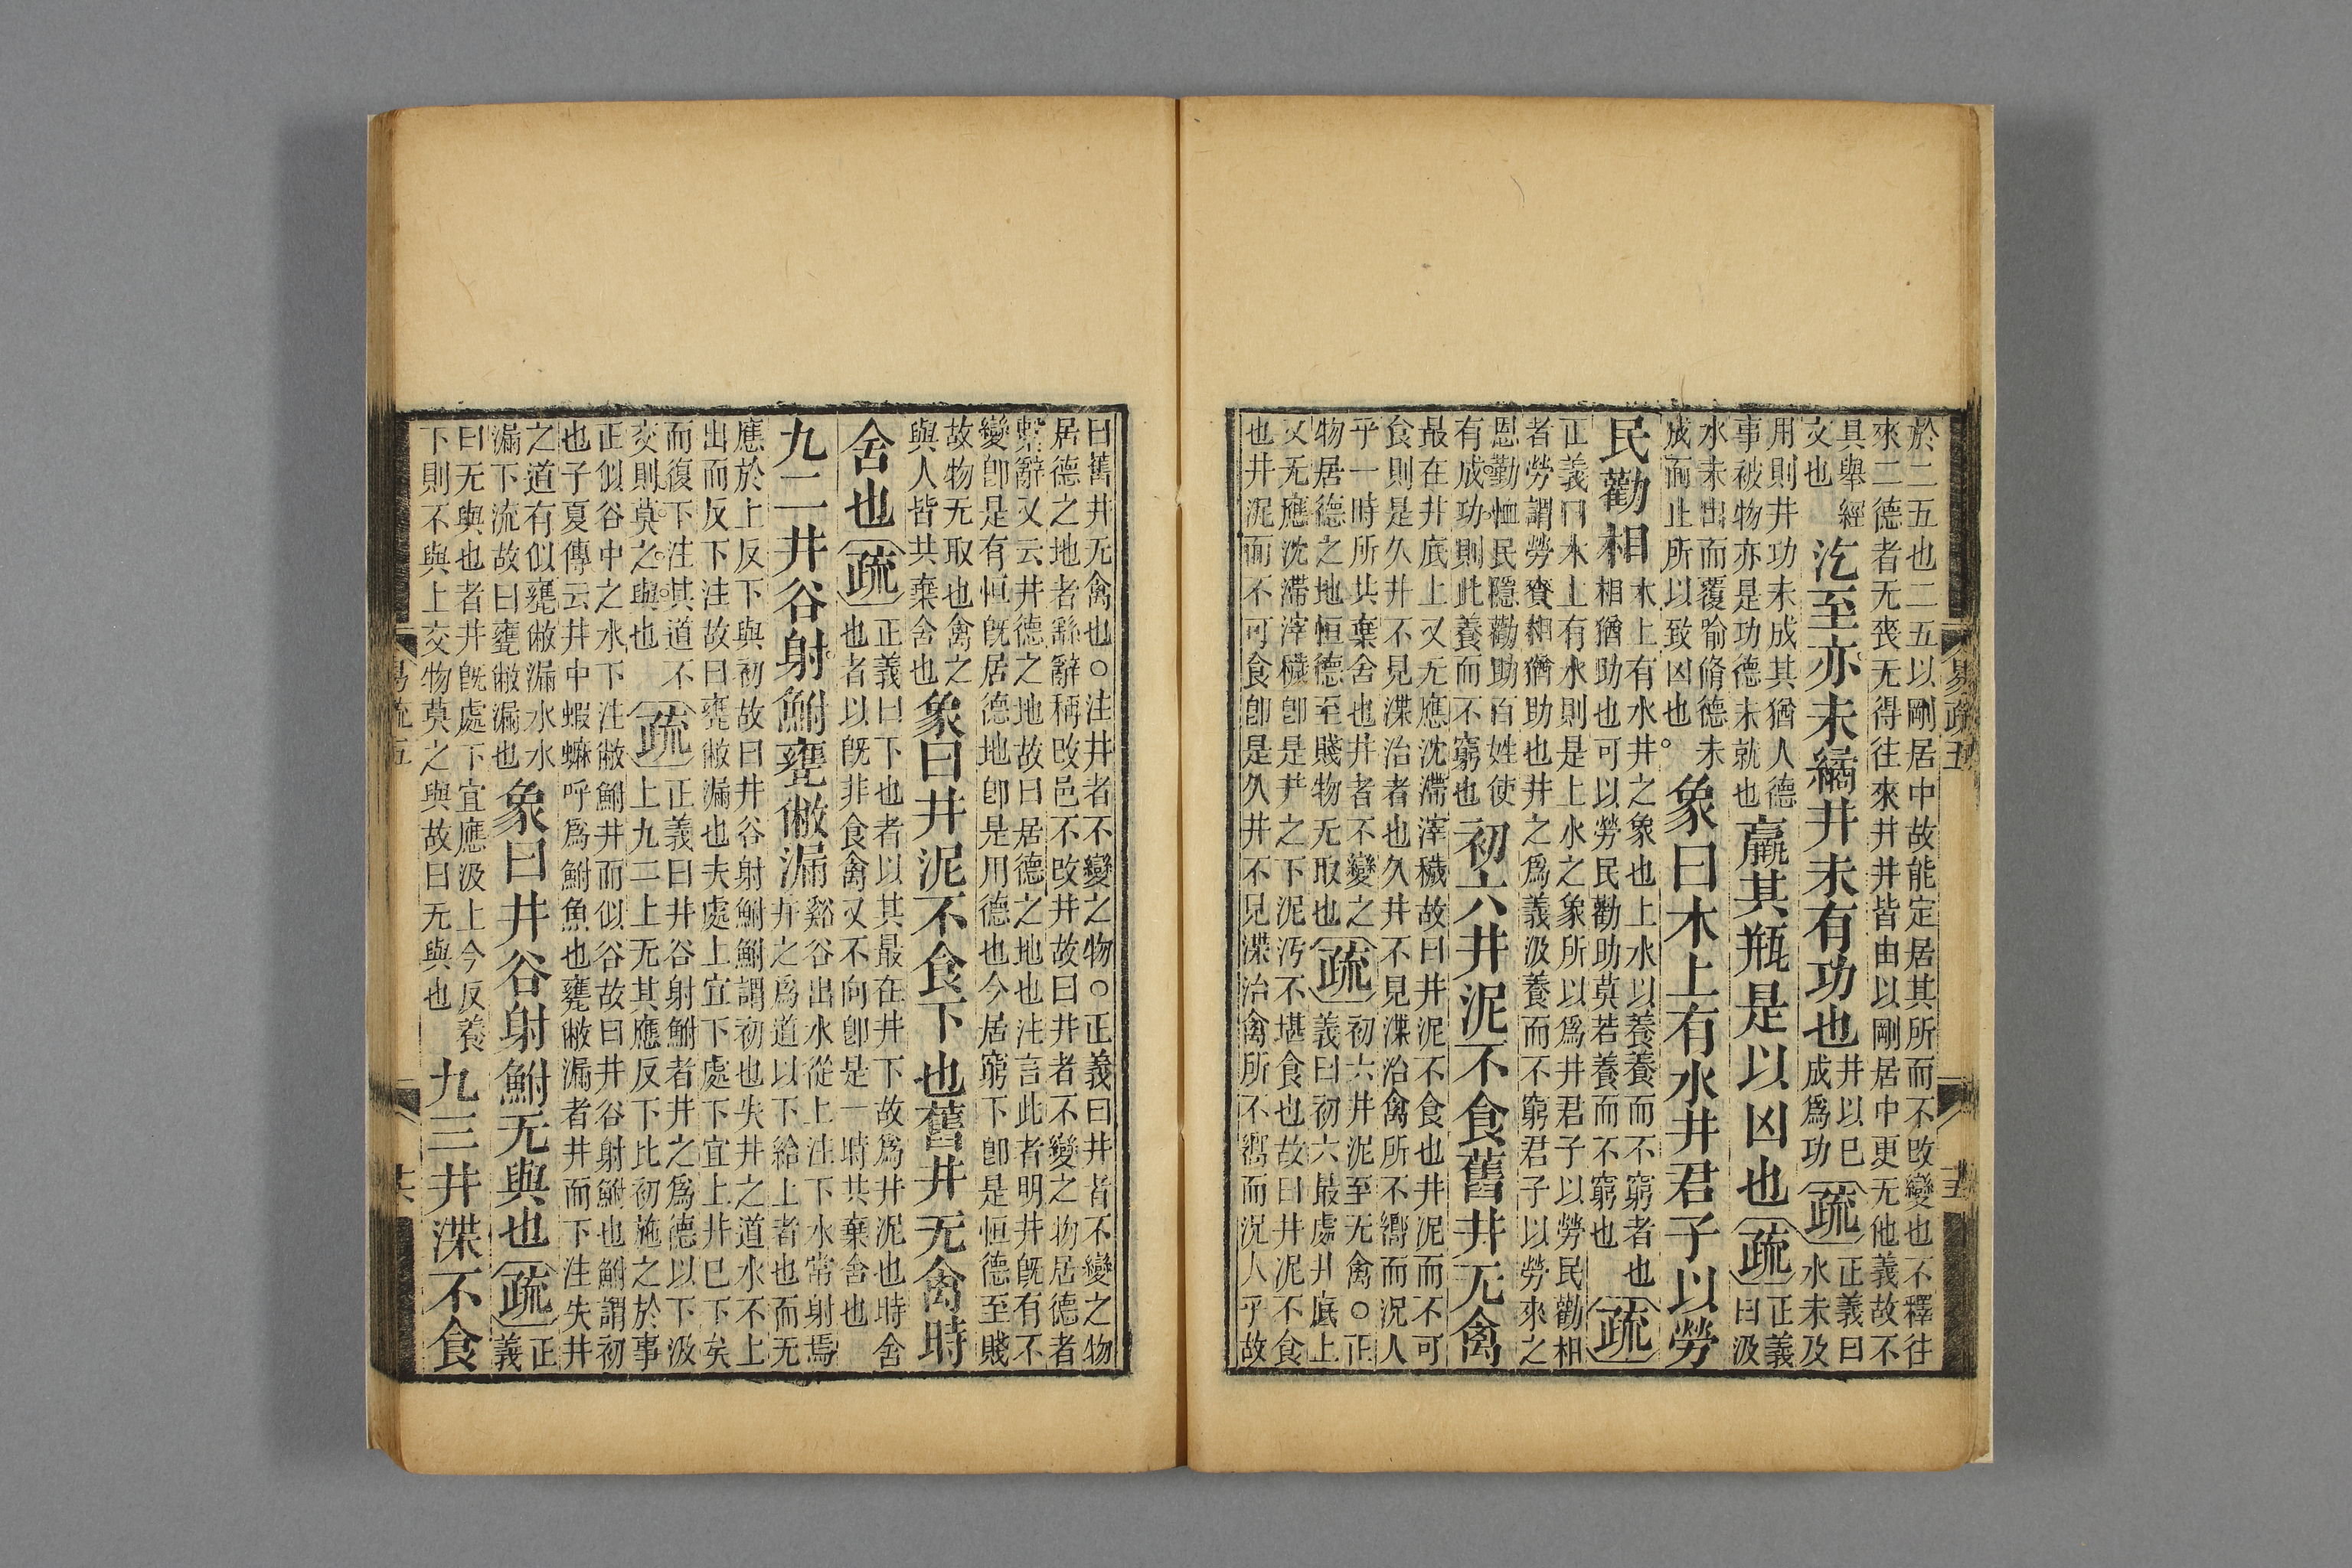 易疏五
於二五也二五以剛居中故能定居其所而不改變也不釋往
來二德者无喪无得往來井井皆由以剛居中更无他義故不
具舉經
文也
汔至亦未繘井未有功也
井以已
成爲功
疏
正義曰
水未及
用則井功未成其猶人德
事被物亦是功德未就也
羸其瓶是以凶也
疏
正義
曰汲
水未出而覆喻脩德未
成而止所以致凶也。
象曰木上有水井君子以勞
民勸相
木上有水井之象也上水以養養而不窮者也
相猶助也可以勞民勸助莫若養而不窮也
疏
正義曰木上有水則是上水之象所以爲井君子以勞民勸相
者勞謂勞賚相猶助也井之爲義汲養而不窮君子以勞來之
恩勤恤民隱勸助百姓使
有成功則此養而不窮也
初六井泥不食舊井无禽
最在井底上又无應沈滯滓穢故曰井泥不食也井泥而不可
食則是久井不見渫治者也久井不見渫治禽所不嚮而況人
乎一時所共棄舍也井者不變之
物居德之地恒德至賤物无取也
疏
初六井泥至无禽○正
義曰初六最處井底上
又无應沈滯滓穢即是井之下泥汚不堪食也故曰井泥不食
也井泥而不可食即是久井不見渫治禽所不嚮而況人乎故
曰舊井无禽也○注井者不變之物○正義曰井者不變之物
居德之地者繇辭稱改邑不改井故曰井者不變之物居德者
繫辭又云井德之地故曰居德之地也注言此者明井既有不
變即是有恒既居德地即是用德也今居窮下即是恒德至賤
故物无取也禽之
與人皆共棄舍也
象曰井泥不食下也舊井无禽時
舍也
疏
正義曰下也者以其最在井下故爲井泥也時舍
也者以既非食禽又不向即是一時共棄舍也
九二井谷射鮒甕敝漏
谿谷出水從上注下水常射焉
井之爲道以下給上者也而无
應於上反下與初故曰井谷射鮒鮒謂初也失井之道水不上
出而反下注故曰甕敝漏也夫處上宜下處下宜上井已下矣
而復下注其道不
交則莫之與也
疏
正義曰井谷射鮒者井之爲德以下汲
上九二上无其應反下比初施之於事
正似谷中之水下注敝鮒井而似谷故曰井谷射鮒也鮒謂初
也子夏傳云井中蝦蟆呼爲鮒魚也甕敝漏者井而下注失井
之道有似甕敝漏水水
漏下流故曰甕敝漏也
象曰井谷射鮒无與也
疏
正
義
曰无與也者井既處下宜應汲上今反養
下則不與上交物莫之與故曰无與也
九三井渫不食
易疏五